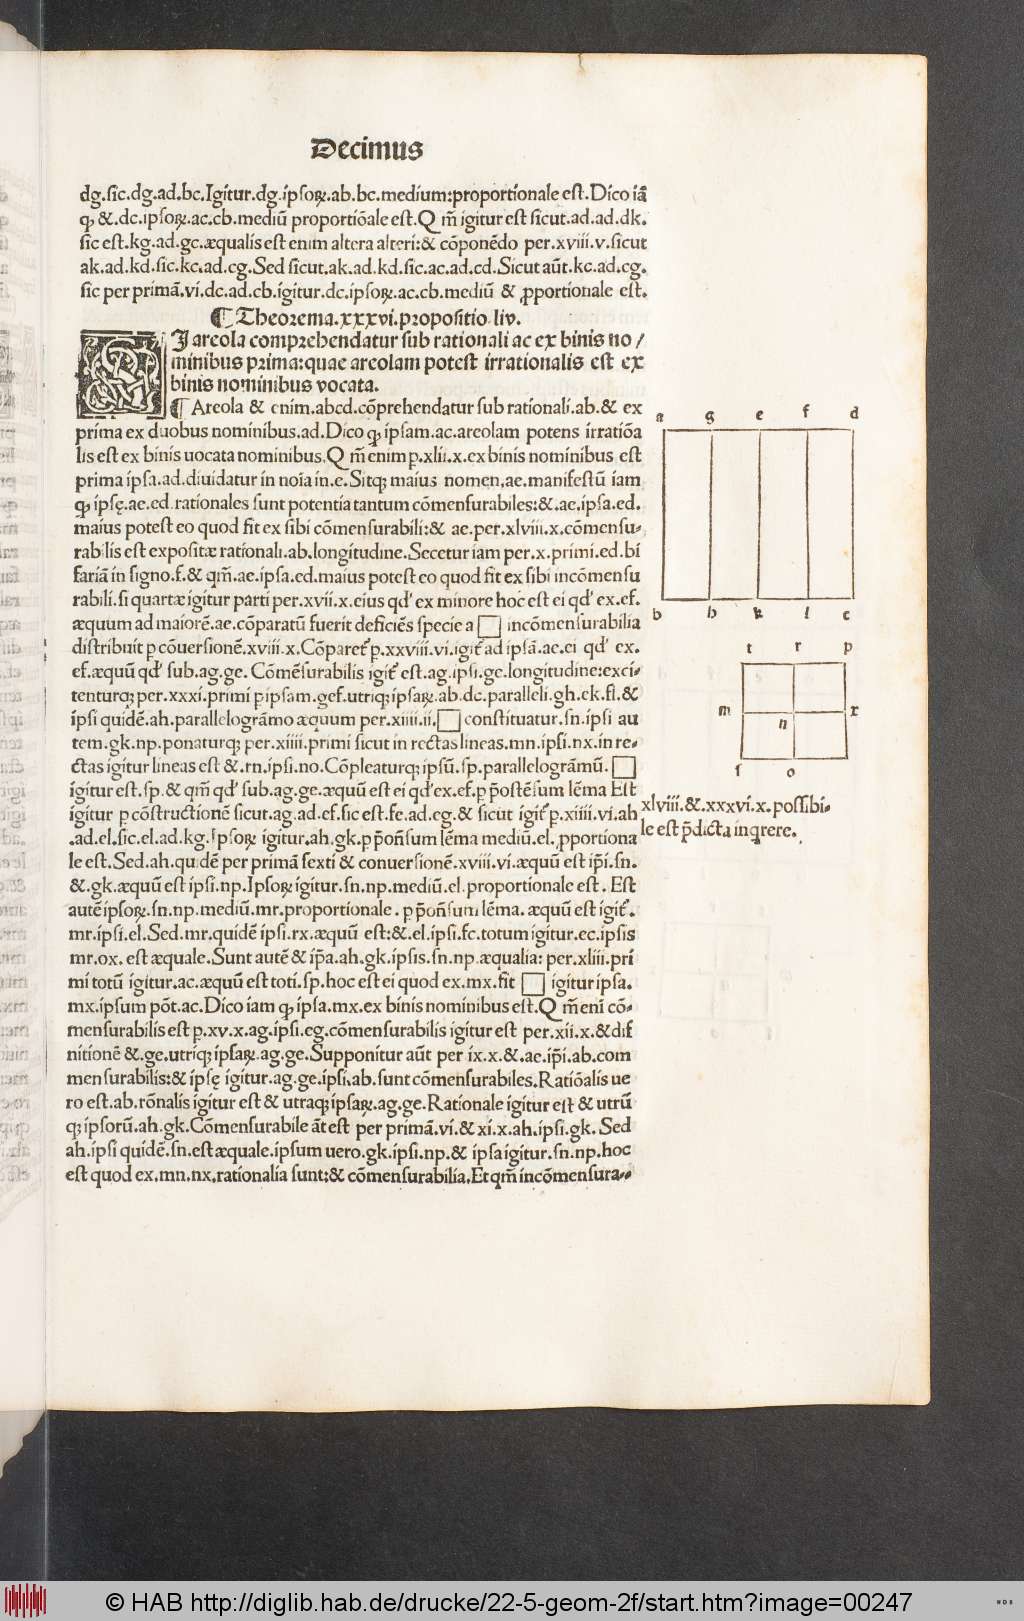 Decimus
dg.sic.dg.ad.bc.Igitur.dg.ipsoꝝ.ab.bc.medium:proportionale est.Dico iã
ꝙ &.dc.ipsoꝝ.ac.cb.mediũ proportiõale est.Q m̃ igitur est sicut.ad.ad.dk.
sic est.kg.ad.gc.æqualis est enim altera alteri:& cõponẽdo per.xviii.v.sicut
ak.ad.kd.sic.kc.ad.cg.Sed sicut.ak.ad.kd.sic.ac.ad.cd.Sicut aũt.kc.ad.cg.
sic per primã.vi.dc.ad.cb.igitur.dc.ipsoꝝ.ac.cb.mediũ & ꝓportionale est.
¶ Theorema.xxxvi.propositio liv.
SI areola comprehendatur sub rationali ac ex binis no/
minibus prima:quae areolam potest irrationalis est ex
binis nominibus vocata.
¶ Areola & enim.abcd.cõprehendatur sub rationali.ab.& ex
prima ex duobus nominibus.ad.Dico ꝙ ipsam.ac.areolam potens irratiõa
lis est ex binis uocata nominibus.Q m̃ enim ꝑ.xlii.x.ex binis nominibus est
prima ipsa.ad.diuidatur in noĩa in.e.Sitqꝫ maius nomen.ae.manifestũ iam
ꝙ ipsę.ae.ed.rationales sunt potentia tantum cõmensurabiles:&.ae.ipsa.ed.
maius potest eo quod fit ex sibi cõmensurabili:& ae.per.xlviii.x.cõmensu-
rabilis est expositæ rationali.ab.longitudine.Secetur iam per.x.primi.ed.bi
fariã in signo.f.& qm̃.ae.ipsa.ed.maius potest eo quod fit ex sibi incõmensu
rabili.si quartæ igitur parti per.xvii.x.eius qđ ex minore hoc est ei qđ ex.ef.
æquum ad maiorẽ.ae.cõparatũ fuerit deficiẽs specie a □ incõmensurabilia
distribuit ꝑ cõuersionẽ.xviii.x.Cõparet᷑ ꝑ.xxviii.vi.igit᷑ ad ipsã.ae.ei qđ ex.
ef.æquũ qđ sub.ag.ge.Cõmẽsurabilis igit᷑ est.ag.ipsi.ge.longitudine:exci-
tenturqꝫ per.xxxi.primi ꝑ ipsam.gef.utriqꝫ ipsaꝝ.ab.dc.paralleli.gh.ek.fl.&
ipsi quidẽ.ah.parallelogrãmo æquum per.xiiii.ii.□ constituatur.sn.ipsi au
tem.gk.np.ponaturqꝫ per.xiiii.primi sicut in rectas lineas.mn.ipsi.nx.in re-
ctas igitur lineas est &.rn.ipsi.no.Cõpleaturqꝫ ipsũ.sp.parallelogrãmũ. □
igitur est.sp.& qm̃ qđ sub.ag.ge.æquũ est ei qđ ex.ef.ꝑ p̃ostẽsum lẽma Est
igitur ꝑ cõstructionẽ sicut.ag.ad.ef.sic est.fe.ad.eg.& sicut igit᷑ ꝑ.xiiii.vi.ah
.ad.el.sic.el.ad.kg.Ipsoꝝ igitur.ah.gk.ꝑ p̃oñsum lẽma mediũ.el.ꝓportiona
le est.Sed.ah.quidẽ per primã sexti & conuersionẽ.xviii.vi.æquũ est ip̃i.sn.
&.gk.æquũ est ipsi.np.Ipsoꝝ igitur.sn.np.mediũ.el.proportionale est. Est
autẽ ipsoꝝ.sn.np.mediũ.mr.proportionale. ꝑ p̃oñsum lẽma. æquũ est igit᷑.
mr.ipsi.el.Sed.mr.quidẽ ipsi.rx.æquũ est:&.el.ipsi.fc.totum igitur.ec.ipsis
mr.ox. est æquale.Sunt autẽ & ip̃a.ah.gk.ipsis.sn.np.æqualia: per.xliii.pri
mi totũ igitur.ac.æquũ est toti.sp.hoc est ei quod ex.mx.fit □ igitur ipsa.
mx.ipsum põt.ac.Dico iam ꝙ ipsa.mx.ex binis nominibus est.Q m̃ eni cõ-
mensurabilis est ꝑ.xv.x.ag.ipsi.eg.cõmensurabilis igitur est per.xii.x.& dif
nitionẽ &.ge.utriqꝫ ipsaꝝ.ag.ge.Supponitur aũt per ix.x.&.ae.ip̃i.ab.com
mensurabilis:& ipsę igitur.ag.ge.ipsi.ab.sunt cõmensurabiles.Ratiõalis ue
ro est.ab.rõnalis igitur est & utraqꝫ ipsaꝝ.ag.ge.Rationale igitur est & utrũ
qꝫ ipsorũ.ah.gk.Cõmensurabile ãt est per primã.vi.& xi.x.ah.ipsi.gk. Sed
ah.ipsi quidẽ.sn.est æquale.ipsum uero.gk.ipsi.np.& ipsa igitur.sn.np.hoc
est quod ex.mn.nx.rationalia sunt:& cõmensurabilia.Et qm̃ incõmensura-
a g e f d
b h k l c
t r p
m n x
s o
xlviii.&.xxxvi.x.possibi-
le est p̃dicta inqrere.
© HAB http://diglib.hab.de/drucke/22-5-geom-2f/start.htm?image=00247